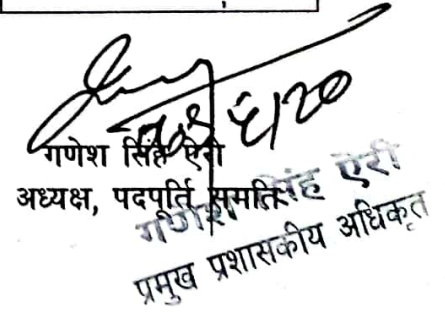 गणेश सिंह ऐरी
अध्यक्ष, पदपूर्ति समिति
गणेश सिंह ऐरी
प्रमुख प्रशासकीय अधिकृत